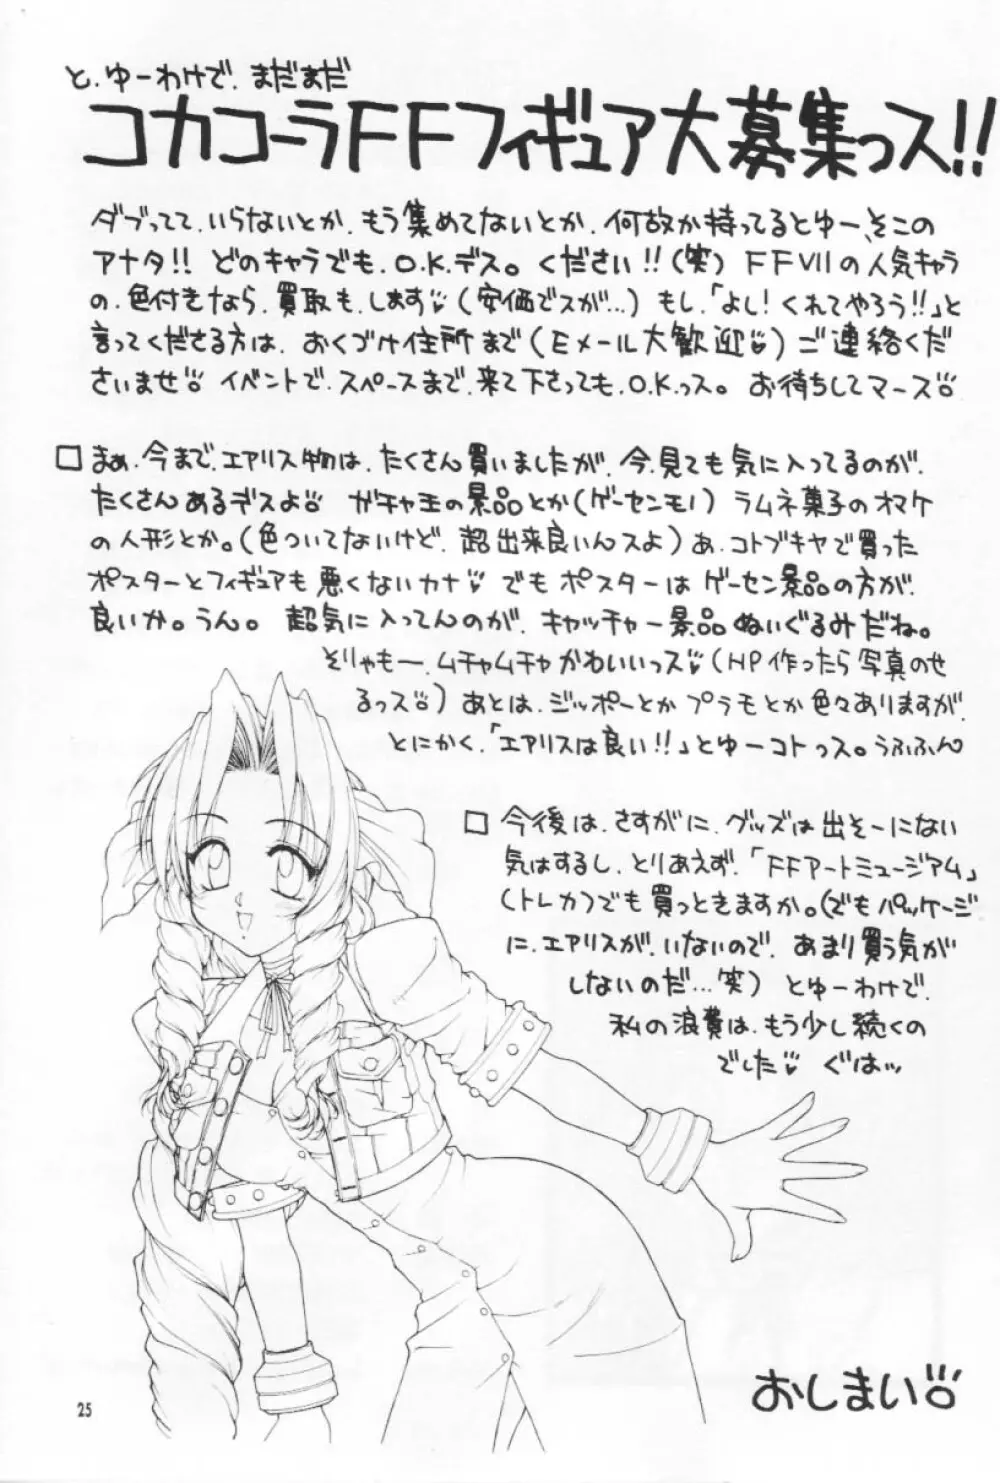 と、ゆーわけで、まだまだ
コカコーラFFフィギュア大募集っス!!
ダブってて、いらないとか、もう集めてないとか、何故か持ってるとゆー、そこの
アナタ!! どのキャラでも、O.K.デス。ください!!(笑) FFVIIの人気キャラ
の、色付きなら、買取も、します(安価でスが…)もし、「よし!くれてやろう!!」と
言ってくださる方は、おくづけ住所まで(Eメール大歓迎)ご連絡くだ
さいませ イベントで、スペースまで、来て下さっても、O.K.っス。お待ちしてマース
□ まぁ、今まで、エアリス物は、たくさん買いましたが、今、見ても気に入ってるのが、
たくさんあるデスよ ガチャ玉の景品とか(ゲーセンモノ)ラムネ菓子のオマケ
の人形とか。(色ついてないけど、超出来良いんスよ)あ、コトブキヤで買った
ポスターとフィギュアも悪くないカナ でもポスターはゲーセン景品の方が、
良いか。うん。 超気に入ってんのが、キャッチャー景品ぬいぐるみだね。
そりゃもー、ムチャムチャかわいいっス(HP作ったら写真のせ
るっス)あとは、ジッポーとかプラモとか色々ありますが、
とにかく、「エアリスは良い!!」とゆーコトっス。うふふん
□ 今後は、さすがに、グッズは出そーにない
気はするし、とりあえず、「FFアートミュージアム」
(トレカ)でも買っときますか。(でもパッケージ
に、エアリスが、いないので、あまり買う気が
しないのだ…笑)とゆーわけで、
私の浪費は、もう少し続くの
でした ぐはッ
おしまい
25